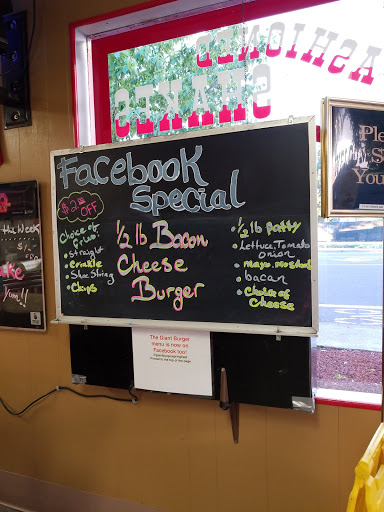 FASHIONED
SHAKES
Facebook
Special
$2 OFF
Choice of
Fries
Straight
Crinkle
Shoe String
Chips
1/2 lb Bacon
Cheese
Burger
1/2 lb Patty
Lettuce, Tomato
onion
Mayo, Mustard
bacon
Choice of
Cheese
The Giant Burger
menu is now on
Facebook too!
the Week
Ple
You